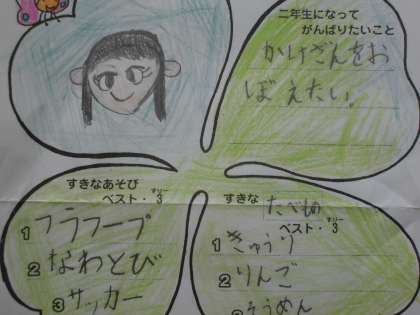 二年生になって
がんばりたいこと
かけざんをお
ぼえたい。
すきなあそび
ベスト・3
スリー
1 フラフープ
2 なわとび
3 サッカー
すきな たべもの
ベスト・3
スリー
1 きゅうり
2 りんご
3 そうめん